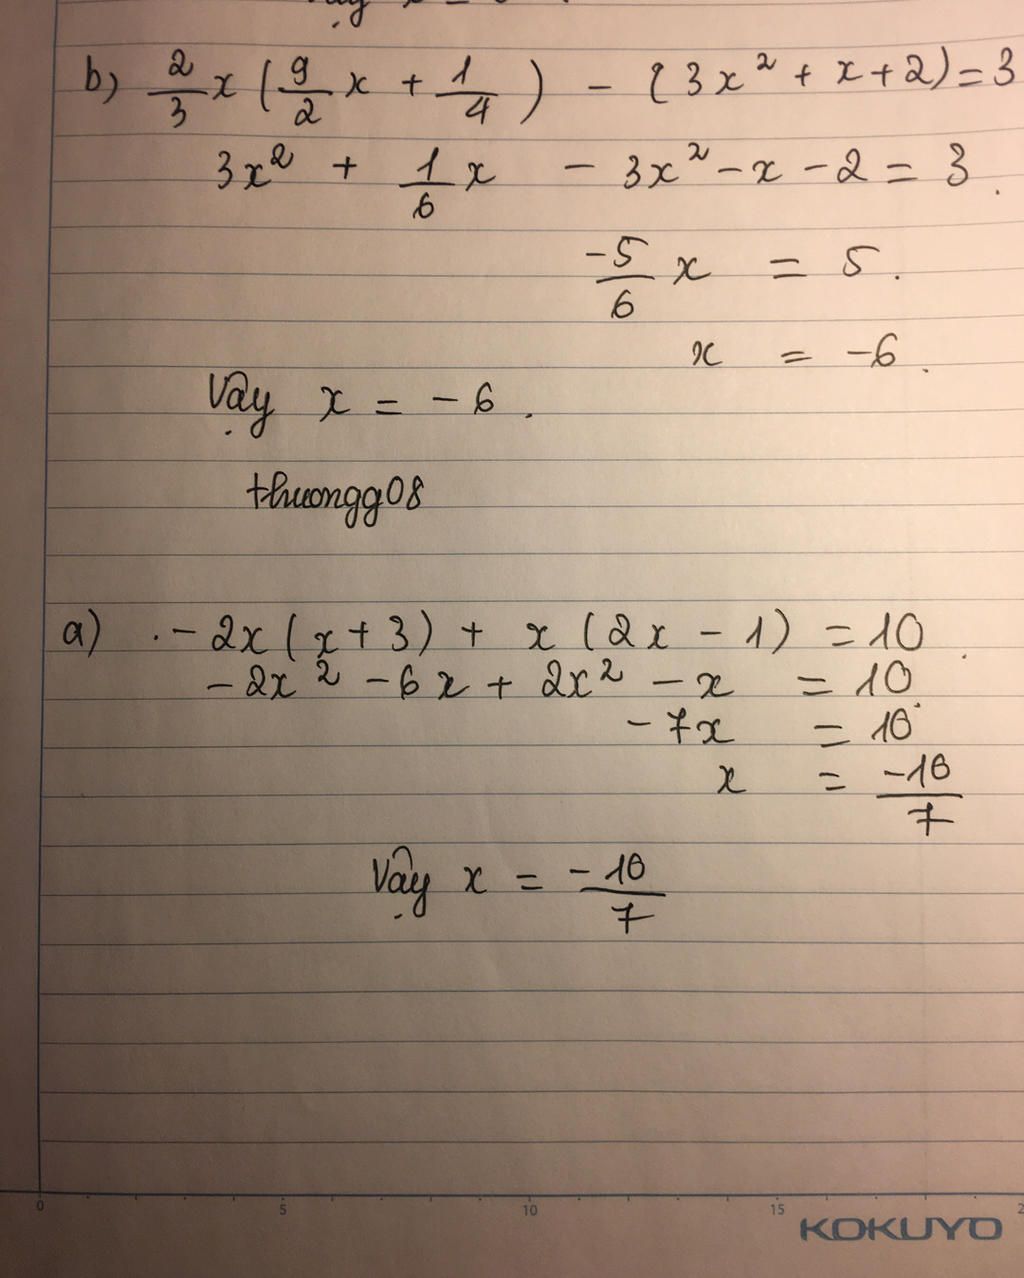 b) 2/3 x ( 9/2 x + 1/4 ) - (3x² + x + 2) = 3
3x² + 1/6 x - 3x² - x - 2 = 3.
-5/6 x = 5.
x = -6.
Vậy x = -6.
thuongg08
a) .-2x(x+3) + x(2x - 1) = 10.
-2x² - 6x + 2x² - x = 10
-7x = 10
x = -10/7
Vậy x = -10/7
0 5 10 15
KOKUYO